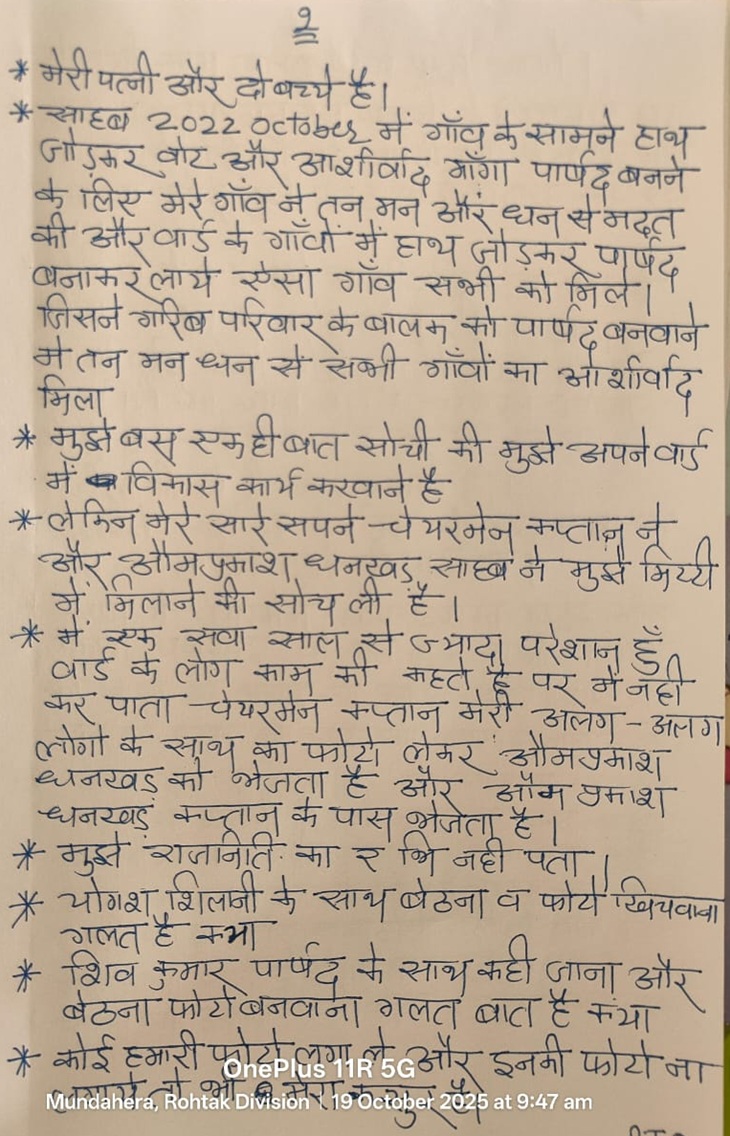 २
* मेरी पत्नी और दो बच्चे है।
* साहब 2022 October में गाँव के सामने हाथ
जोड़कर वोट और आर्शीर्वाद माँगा पार्षद बनने
के लिए मेरे गाँव ने तन मन और धन से मदत
की और वार्ड के गाँवों में हाथ जोड़कर पार्षद
बनाकर लाये ऐसा गाँव सभी को मिले।
जिसने गरिब परिवार के बालक को पार्षद बनवाने
मे तन मन धन से सभी गाँवों का आर्शीर्वाद
मिला
* मुझे बस एक ही बात सोची की मुझे अपने वार्ड
में विकास कार्य करवाने है
* लेकिन मेरे सारे सपने चेयरमेन कप्तान ने
और औमप्रकाश धनखड़ साहब ने मुझे मिट्टी
में मिलाने की सोच ली है।
* में एक सवा साल से ज्यादा परेशान हूँ
वार्ड के लोग काम की कहते है पर मे नही
कर पाता चेयरमेन कप्तान मेरी अलग-अलग
लोगो के साथ का फोटो लेकर औमप्रकाश
धनखड़ को भेजता है और औम प्रकाश
धनखड़ कप्तान के पास भेजता है।
* मुझे राजनिति का र भि नही पता।
* योगश शिलानी के साथ बेठना व फोटो खिचवाना
गलत है क्या
* शिव कुमार पार्षद के साथ कही जाना और
बेठना फोटो बनवाना गलत बात है क्या
* कोई हमारी फोटो लगा ले और इनकी फोटो ना
लगाये तो भी मेरा कसुर है
OnePlus 11R 5G
Mundahera, Rohtak Division | 19 October 2025 at 9:47 am